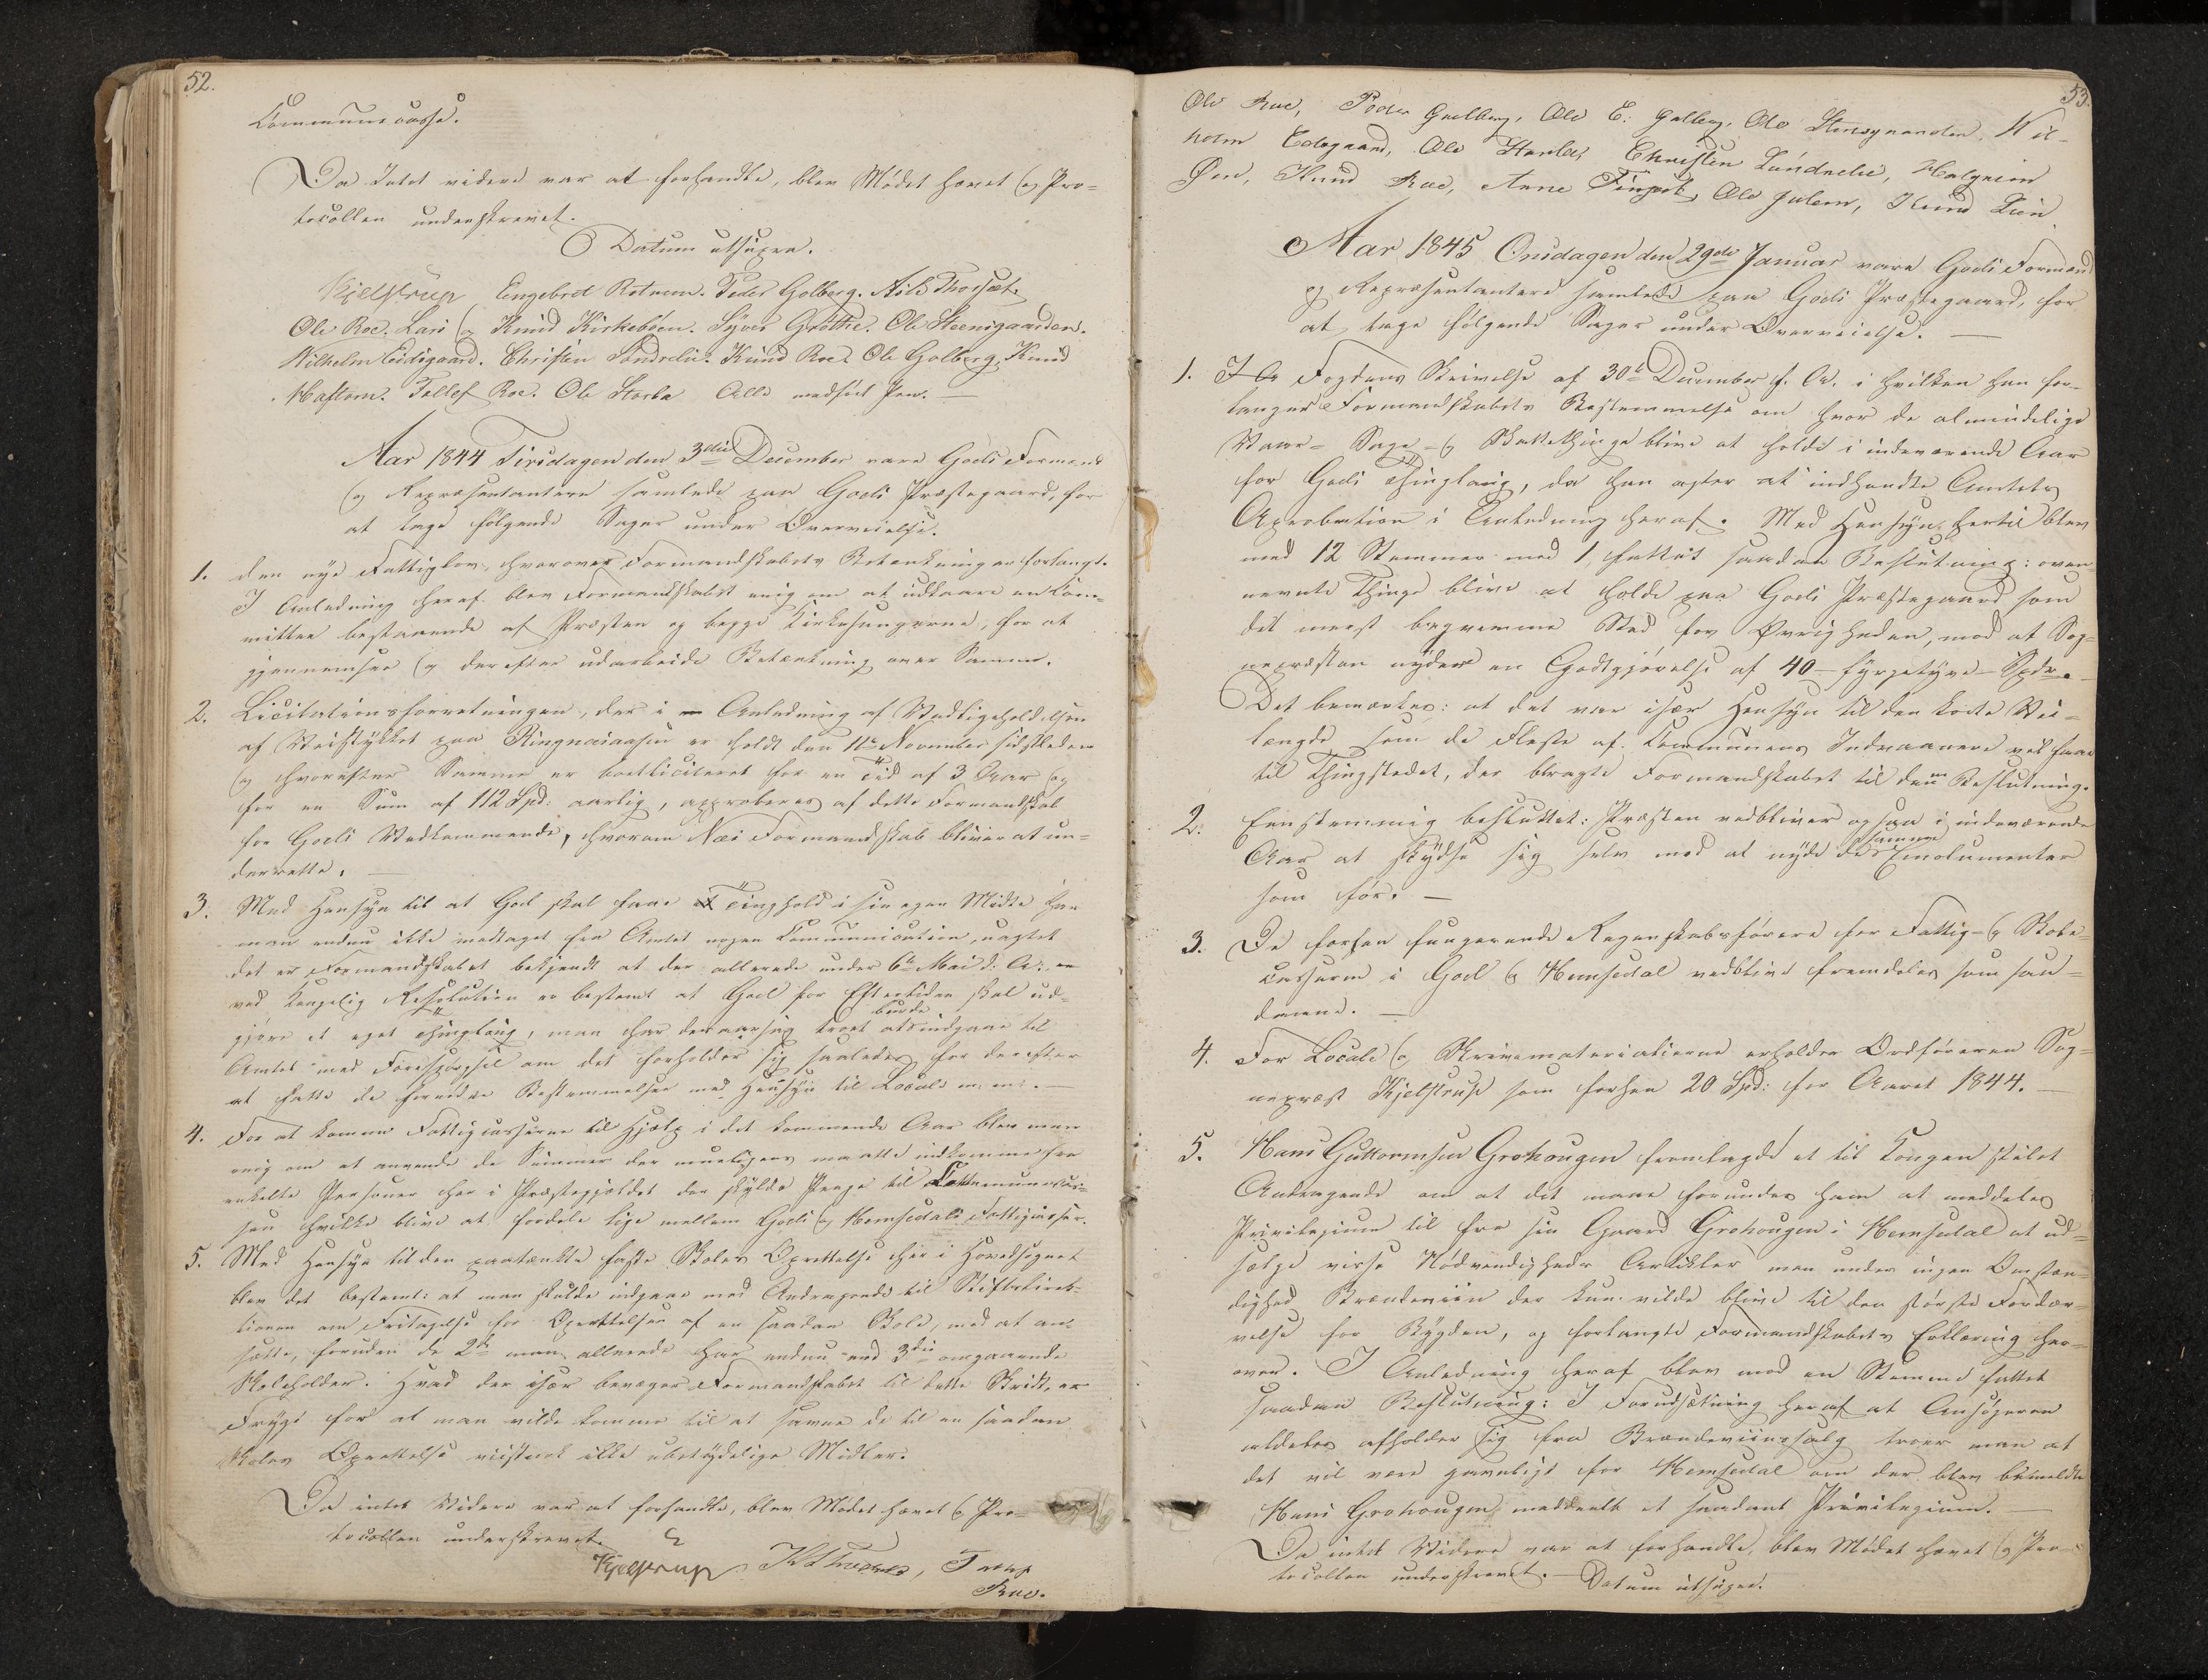 52.
Communecasse.
Da Intet videre var at forhandle, blev Mødet hævet og Pro=
tocollen underskrevet.
Datum utsupra.
Kjelstrup Engebret Rotnem. Peder Golberg. Nils Thorset.
Ole Roe. Lars og Knud Kirkebøen. Syver Grøthe. Ole Steensgaarden.
Wilhelm Eidsgaard. Christen Sondrelie. Knud Roe. Ole Golberg. Knud
Haftorn. Tollef Roe. Ole Storla Alle medført Pen.
Aar 1844 Tirsdagen den 3die December vare Goels Formænd
og Repræsentantere samlede paa Goels Præstegaard, for
at tage følgende Sager under Overveielse.
1. den nye Fattiglov, hvorover Formandskabets Betænkning er forlangt.
I Anledning heraf blev Formandskabet enig om at udkaare en Com=
mittee bestaaende af Præsten og begge Kirkesangerne, for at
gjennemsee og derefter udarbeide Betænkning over Samme.
2. Licitationsforretningen, der i Anledning af Vedligeholdelsen
af Veistykket paa Ringnæsaasen er holdt den 11te November sidstleden
og hvorefter Samme er bortliciteret for en Tid af 3 Aar og
for en Sum af 112 Spd: aarlig, approberes af dette Formandskab
for Goels Vedkommende, hvorom Næs Formandskab bliver at un=
derrette.
3. Med Hensyn til at Goel skal faae et Tinghold i sin egen Midte har
man endnu ikke modtaget fra Amtet nogen Communication, uagtet
det er Formandskabet bekjendt at der allerede under 6te Mai d: A: er
ved kongelig Resolution er bestemt at Goel for Eftertiden skal ud=
gjøre et eget Thinglaug, man har desaarsag troet at burde indgaae til
Amtet med Forespørgsel om det forholder sig saaledes for derefter
at fatte de fornødne Bestemmelser med Hensyn til Locale m. m.
4. For at komme Fattigcasserne til Hjælp i det kommende Aar blev man
enig om at anvende de Summer der mueligens maatte indkomme fra
enkelte Personer her i Præstegjeldet der skylde Penge til Communecas=
sen hvilke blive at fordele lige mellem Goels og Hemsedals Fattigcasser.
5. Med Hensyn til den paatænkte faste Skoles Oprettelse her i Hovedsognet
blev det bestemt: at man skulde indgaae med Andragende til Stiftsdirek=
tionen om Fritagelse for Oprettelsen af en saadan Skole, mod at an=
sætte, foruden de 2de man allerede har endnu en 3die omgaaende
Skoleholder. Hvad der især bevæger Formandskabet til dette Skridt, er
Frygt for at man vilde komme til at savne de til en saadan
Skoles Oprettelse vistnok ikke ubetydelige Midler.
Da intet Videre var at forhandle, blev Mødet hævet og Pro=
tocollen underskrevet.
Kjelstrup
Roe.
53.
Ole Roe, Peder Guelberg, Ole E. Golberg, Ole Stensgaarden, Wil-
helm Eidsgaard, Ole Storla, Christen Sundrelie, Halgrim
Øen, Knud Roe, Arne Ole Golberg, Knud Lien
Aar 1845 Onsdagen den 29de Januar vare Goels Formænd
og Repræsentantere samlede paa Goels Præstegaard, for
at tage følgende Sager under Overveielse.
1. Fogdens Skrivelse af 30te December f. A. i hvilken han for-
langer Formandskabets Bestemmelse om hvor de almindelige
Vaar- Sage- og Skattethinge blive at holde i indeværende Aar
for Goels Thinglaug, da han agter at indhendte Amtets
Aprobation i Anledning heraf. Med Hensyn hertil blev
med 12 Stemmer mod 1, fattet saadan Beslutning: oven-
nævnte Thinge blive at holde paa Goels Præstegaard som
det meest beqvemme Sted for Øvrigheden, mod at Sog-
nepræsten nyder en Godtgjørelse af 40 - fyrgetyve - Spdr.
Det bemærkes: at det var især Hensyn til den korte Vei-
længde som de fleste af Communens Indvaanere vil faae
til Thingstedet, der bragte Formandskabet til denne Beslutning.
2. Eenstemmig besluttet: Præsten vedbliver ogsaa i indeværende
Aar at skydse sig selv mod at nyde de samme Emolumenter
som før.
3. De forhen fungerende Regnskabsførere for Fattig- og Skole-
casserne i Goel og Hemsedal vedblive fremdeles som saa-
danne.
4. For Locale og Skrivematerialierne erholder Ordføreren Sog-
nepræst Kjelstrup som forhen 20 Spd: for Aaret 1844.
5. Hans Guttormsen Grøthougen fremlagde et til Kongen stilet
Andragende om at det maae forundes ham at meddeles
Privilegium til fra sin Gaard Grøthougen i Hemsedal at ud=
sælge visse Nødvendigheds Artikler men under ingen Omstæn=
dighed Brændeviin der kun vilde blive til den største Fordær=
velse for Bygden, og forlangte Formandskabets Erklæring her=
over. I Anledning heraf blev mod en Stemme fattet
saadan Beslutning: I Forudsætning heraf at Ansøgeren
aldeles afholder sig fra Brændeviinssalg troer man at
det vil være gavnligt for Hemsedal om der blev bemeldte
Hans Grøthougen meddeelt et saadant Privilegium.
Da intet Videre var at forhandle, blev Mødet hævet og Pro=
tocollen underskrevet. Datum utsupra.